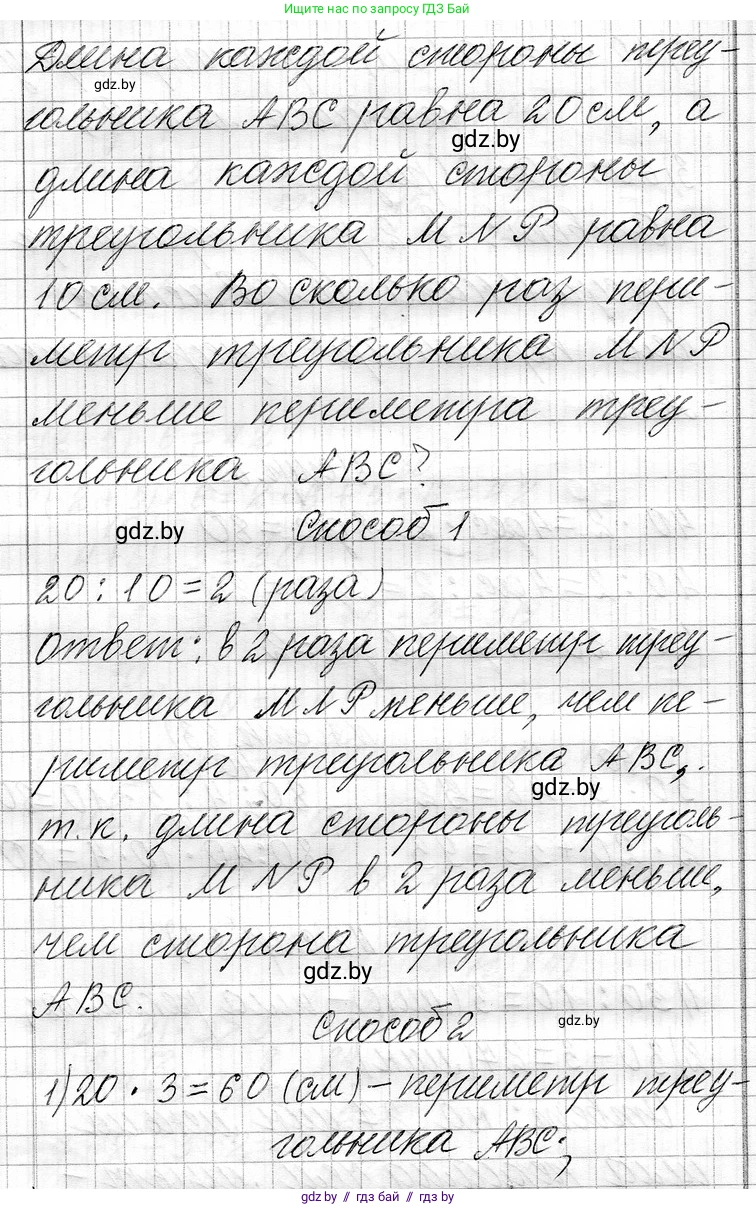 Ищите нас по запросу ГДЗ Бай
Длина каждой стороны треу-
gdz.by
гольника ABC равна 20 см, а
gdz.by
длина каждой стороны
треугольника MNP равна
10 см. Во сколько раз пери-
метр треугольника MNP
меньше периметра треу-
гольника ABC?
gdz.by
Способ 1
20 : 10 = 2 (раза)
Ответ: в 2 раза периметр треу-
гольника MNP меньше, чем пе-
риметр треугольника ABC,.
gdz.by
т.к. длина стороны треуголь-
ника MNP в 2 раза меньше,
чем сторона треугольника
gdz.by
ABC.
Способ 2
gdz.by
1) 20 · 3 = 60 (см) – периметр треу-
гольника ABC;
gdz.by // гдз бай // gdz.by